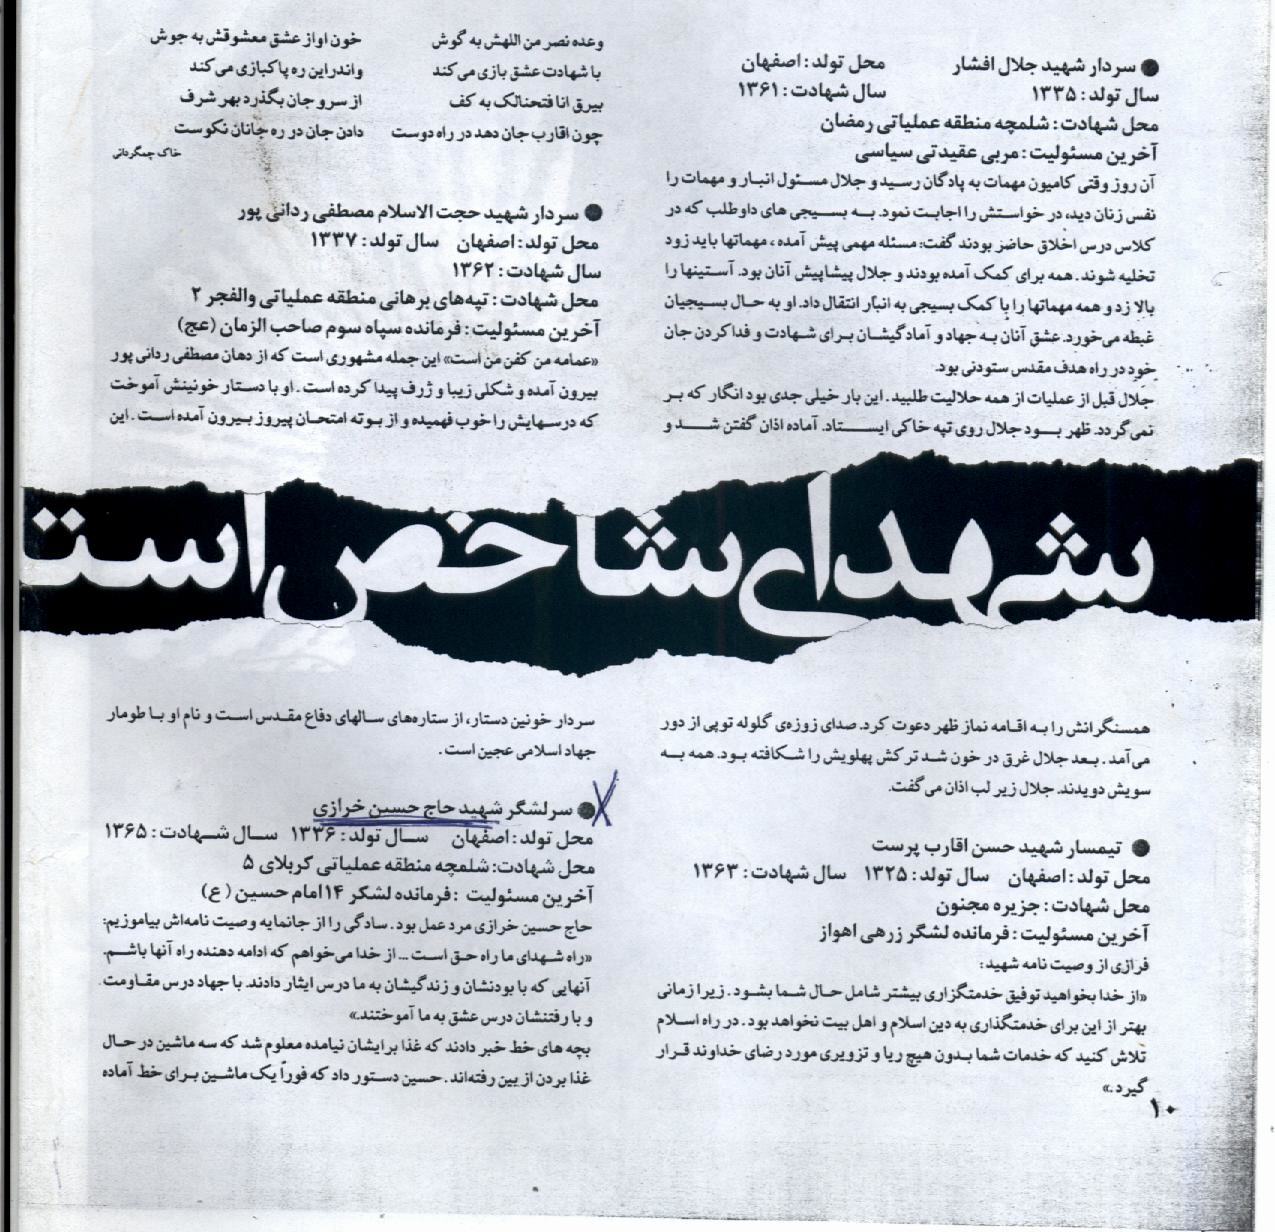 ● سردار شهید جلال افشار    محل تولد : اصفهان
سال تولد : ۱۳۳۵    سال شهادت : ۱۳۶۱
محل شهادت : شلمچه منطقه عملیاتی رمضان
آخرین مسئولیت : مربی عقیدتی سیاسی
آن روز وقتی کامیون مهمات به پادگان رسید و جلال مسئول انبار و مهمات را
نفس زنان دید، در خواستش را اجابت نمود. به بسیجی های داوطلب که در
کلاس درس اخلاق حاضر بودند گفت: مسئله مهمی پیش آمده ، مهماتها باید زود
تخلیه شوند . همه برای کمک آمده بودند و جلال پیشاپیش آنان بود. آستینها را
بالا زد و همه مهماتها را با کمک بسیجی به انبار انتقال داد. او به حال بسیجیان
غبطه می‌خورد. عشق آنان به جهاد و آمادگیشان برای شهادت و فدا کردن جان
خود در راه هدف مقدس ستودنی بود.
جلال قبل از عملیات از همه حلالیت طلبید . این بار خیلی جدی بود انگار که بر
نمی‌گردد. ظهر بود جلال روی تپه خاکی ایستاد. آماده اذان گفتن شد و
وعده نصر من اللهش به گوش    خون اواز عشق معشوقش به جوش
با شهادت عشق بازی می‌کند    واندر این ره پاکبازی می‌کند
بیرق انا فتحنالک به کف    از سر و جان بگذرد بهر شرف
چون اقارب جان دهد در راه دوست    دادن جان در ره جانان نکوست
خاک چمگردانی
● سردار شهید حجت الاسلام مصطفی ردانی پور
محل تولد : اصفهان    سال تولد : ۱۳۳۷
سال شهادت : ۱۳۶۲
محل شهادت : تپه‌های برهانی منطقه عملیاتی والفجر ۲
آخرین مسئولیت : فرمانده سپاه سوم صاحب الزمان (عج)
«عمامه من کفن من است» این جمله مشهوری است که از دهان مصطفی ردانی پور
بیرون آمده و شکلی زیبا و ژرف پیدا کرده است . او با دستار خونینش آموخت
که درسهایش را خوب فهمیده و از بوته امتحان پیروز بیرون آمده است . این
شهدای شاخص است
همسنگرانش را به اقامه نماز ظهر دعوت کرد. صدای زوزه‌ی گلوله توپی از دور
می‌آمد . بعد جلال غرق در خون شد ترکش پهلویش را شکافته بود. همه به
سویش دویدند. جلال زیر لب اذان می‌گفت.
● تیمسار شهید حسن اقارب پرست
محل تولد : اصفهان    سال تولد : ۱۳۲۵    سال شهادت : ۱۳۶۳
محل شهادت : جزیره مجنون
آخرین مسئولیت : فرمانده لشگر زرهی اهواز
فرازی از وصیت نامه شهید :
«از خدا بخواهید توفیق خدمتگزاری بیشتر شامل حال شما بشود . زیرا زمانی
بهتر از این برای خدمتگذاری به دین اسلام و اهل بیت نخواهد بود . در راه اسلام
تلاش کنید که خدمات شما بدون هیچ ریا و تزویری مورد رضای خداوند قرار
گیرد .»
سردار خونین دستار، از ستاره‌های سالهای دفاع مقدس است و نام او با طومار
جهاد اسلامی عجین است .
● سرلشگر شهید حاج حسین خرازی
محل تولد : اصفهان    سال تولد : ۱۳۳۶    سال شهادت : ۱۳۶۵
محل شهادت: شلمچه منطقه عملیاتی کربلای ۵
آخرین مسئولیت : فرمانده لشکر ۱۴ امام حسین (ع)
حاج حسین خرازی مرد عمل بود . سادگی را از جانمایه وصیت نامه‌اش بیاموزیم:
«راه شهدای ما راه حق است ... از خدا می‌خواهم که ادامه دهنده راه آنها باشم.
آنهایی که با بودنشان و زندگیشان به ما درس ایثار دادند. با جهاد درس مقاومت.
و با رفتنشان درس عشق به ما آموختند.»
بچه های خط خبر دادند که غذا برایشان نیامده معلوم شد که سه ماشین در حال
غذا بردن از بین رفته‌اند . حسین دستور داد که فوراً یک ماشین برای خط آماده
۱۰